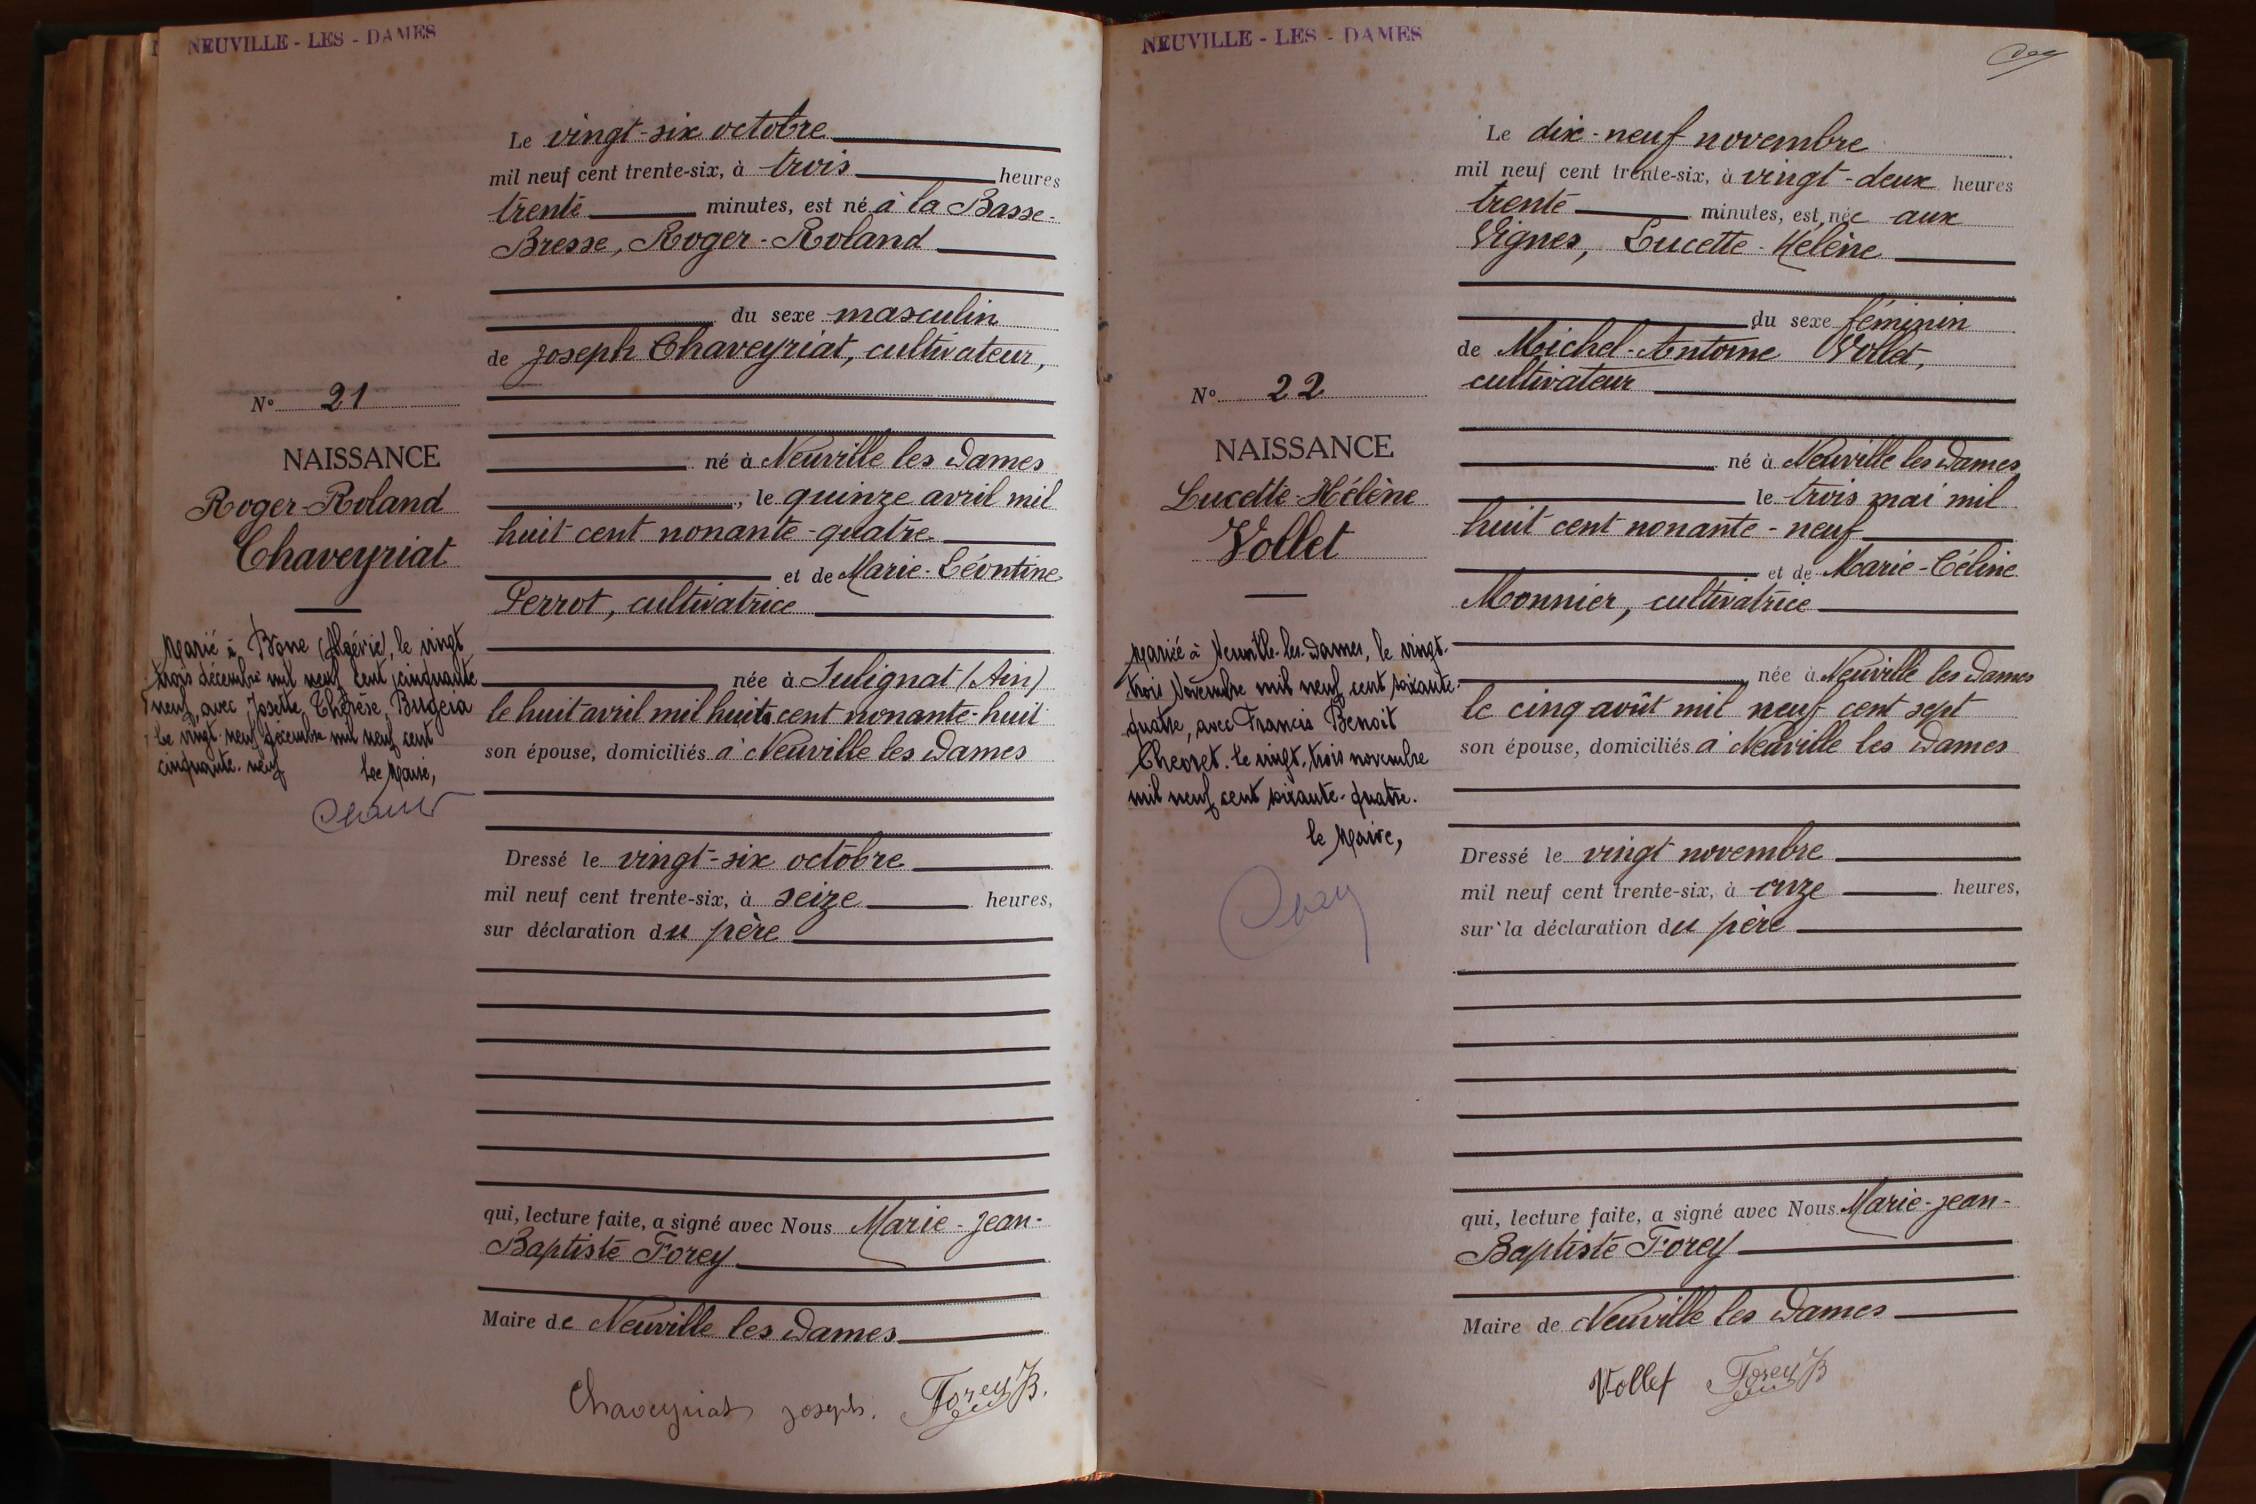 NEUVILLE - LES - DAMES
Le vingt-six octobre
mil neuf cent trente-six, à trois heures
trente minutes, est né à la Basse-
Bresse, Roger-Roland
du sexe masculin
de Joseph Chaveyriat, cultivateur,
N° 21
NAISSANCE
Roger-Roland
Chaveyriat
né à Neuville les Dames
, le quinze avril mil
huit cent nonante-quatre
et de Marie-Léontine
Perrot, cultivatrice
née à Sulignat (Ain)
le huit avril mil huits cent nonante-huit
son épouse, domiciliés à Neuville les Dames
Marié à Bone (Algérie), le vingt
trois décembre mil neuf cent cinquante
neuf, avec Josette, Thérèse, Bugeia
Le vingt-neuf décembre mil neuf cent
cinquante-neuf Le Maire,
Dressé le vingt-six octobre
mil neuf cent trente-six, à seize heures,
sur déclaration du père
qui, lecture faite, a signé avec Nous Marie-Jean-
Baptiste Forey
Maire de Neuville les Dames
Chaveyriat Joseph. Forey JB.
NEUVILLE - LES - DAMES
Le dix-neuf novembre
mil neuf cent trente-six, à vingt-deux heures
trente minutes, est née aux
Vignes, Lucette-Hélène
du sexe féminin
de Michel-Antoine Vollet,
cultivateur
N° 22
NAISSANCE
Lucette-Hélène
Vollet
né à Neuville les Dames
le trois mai mil
huit cent nonante-neuf
et de Marie-Céline
Monnier, cultivatrice
née à Neuville les Dames
le cinq août mil neuf cent sept
son épouse, domiciliés à Neuville les Dames
Mariée à Neuville-les-Dames, le vingt-
trois Novembre mil neuf cent soixante-
quatre, avec Francis Benoit
Chevret. Le vingt-trois novembre
mil neuf cent soixante-quatre.
le Maire,
Dressé le vingt novembre
mil neuf cent trente-six, à onze heures,
sur la déclaration du père
qui, lecture faite, a signé avec Nous Marie-Jean-
Baptiste Forey
Maire de Neuville les Dames
Vollet Forey JB